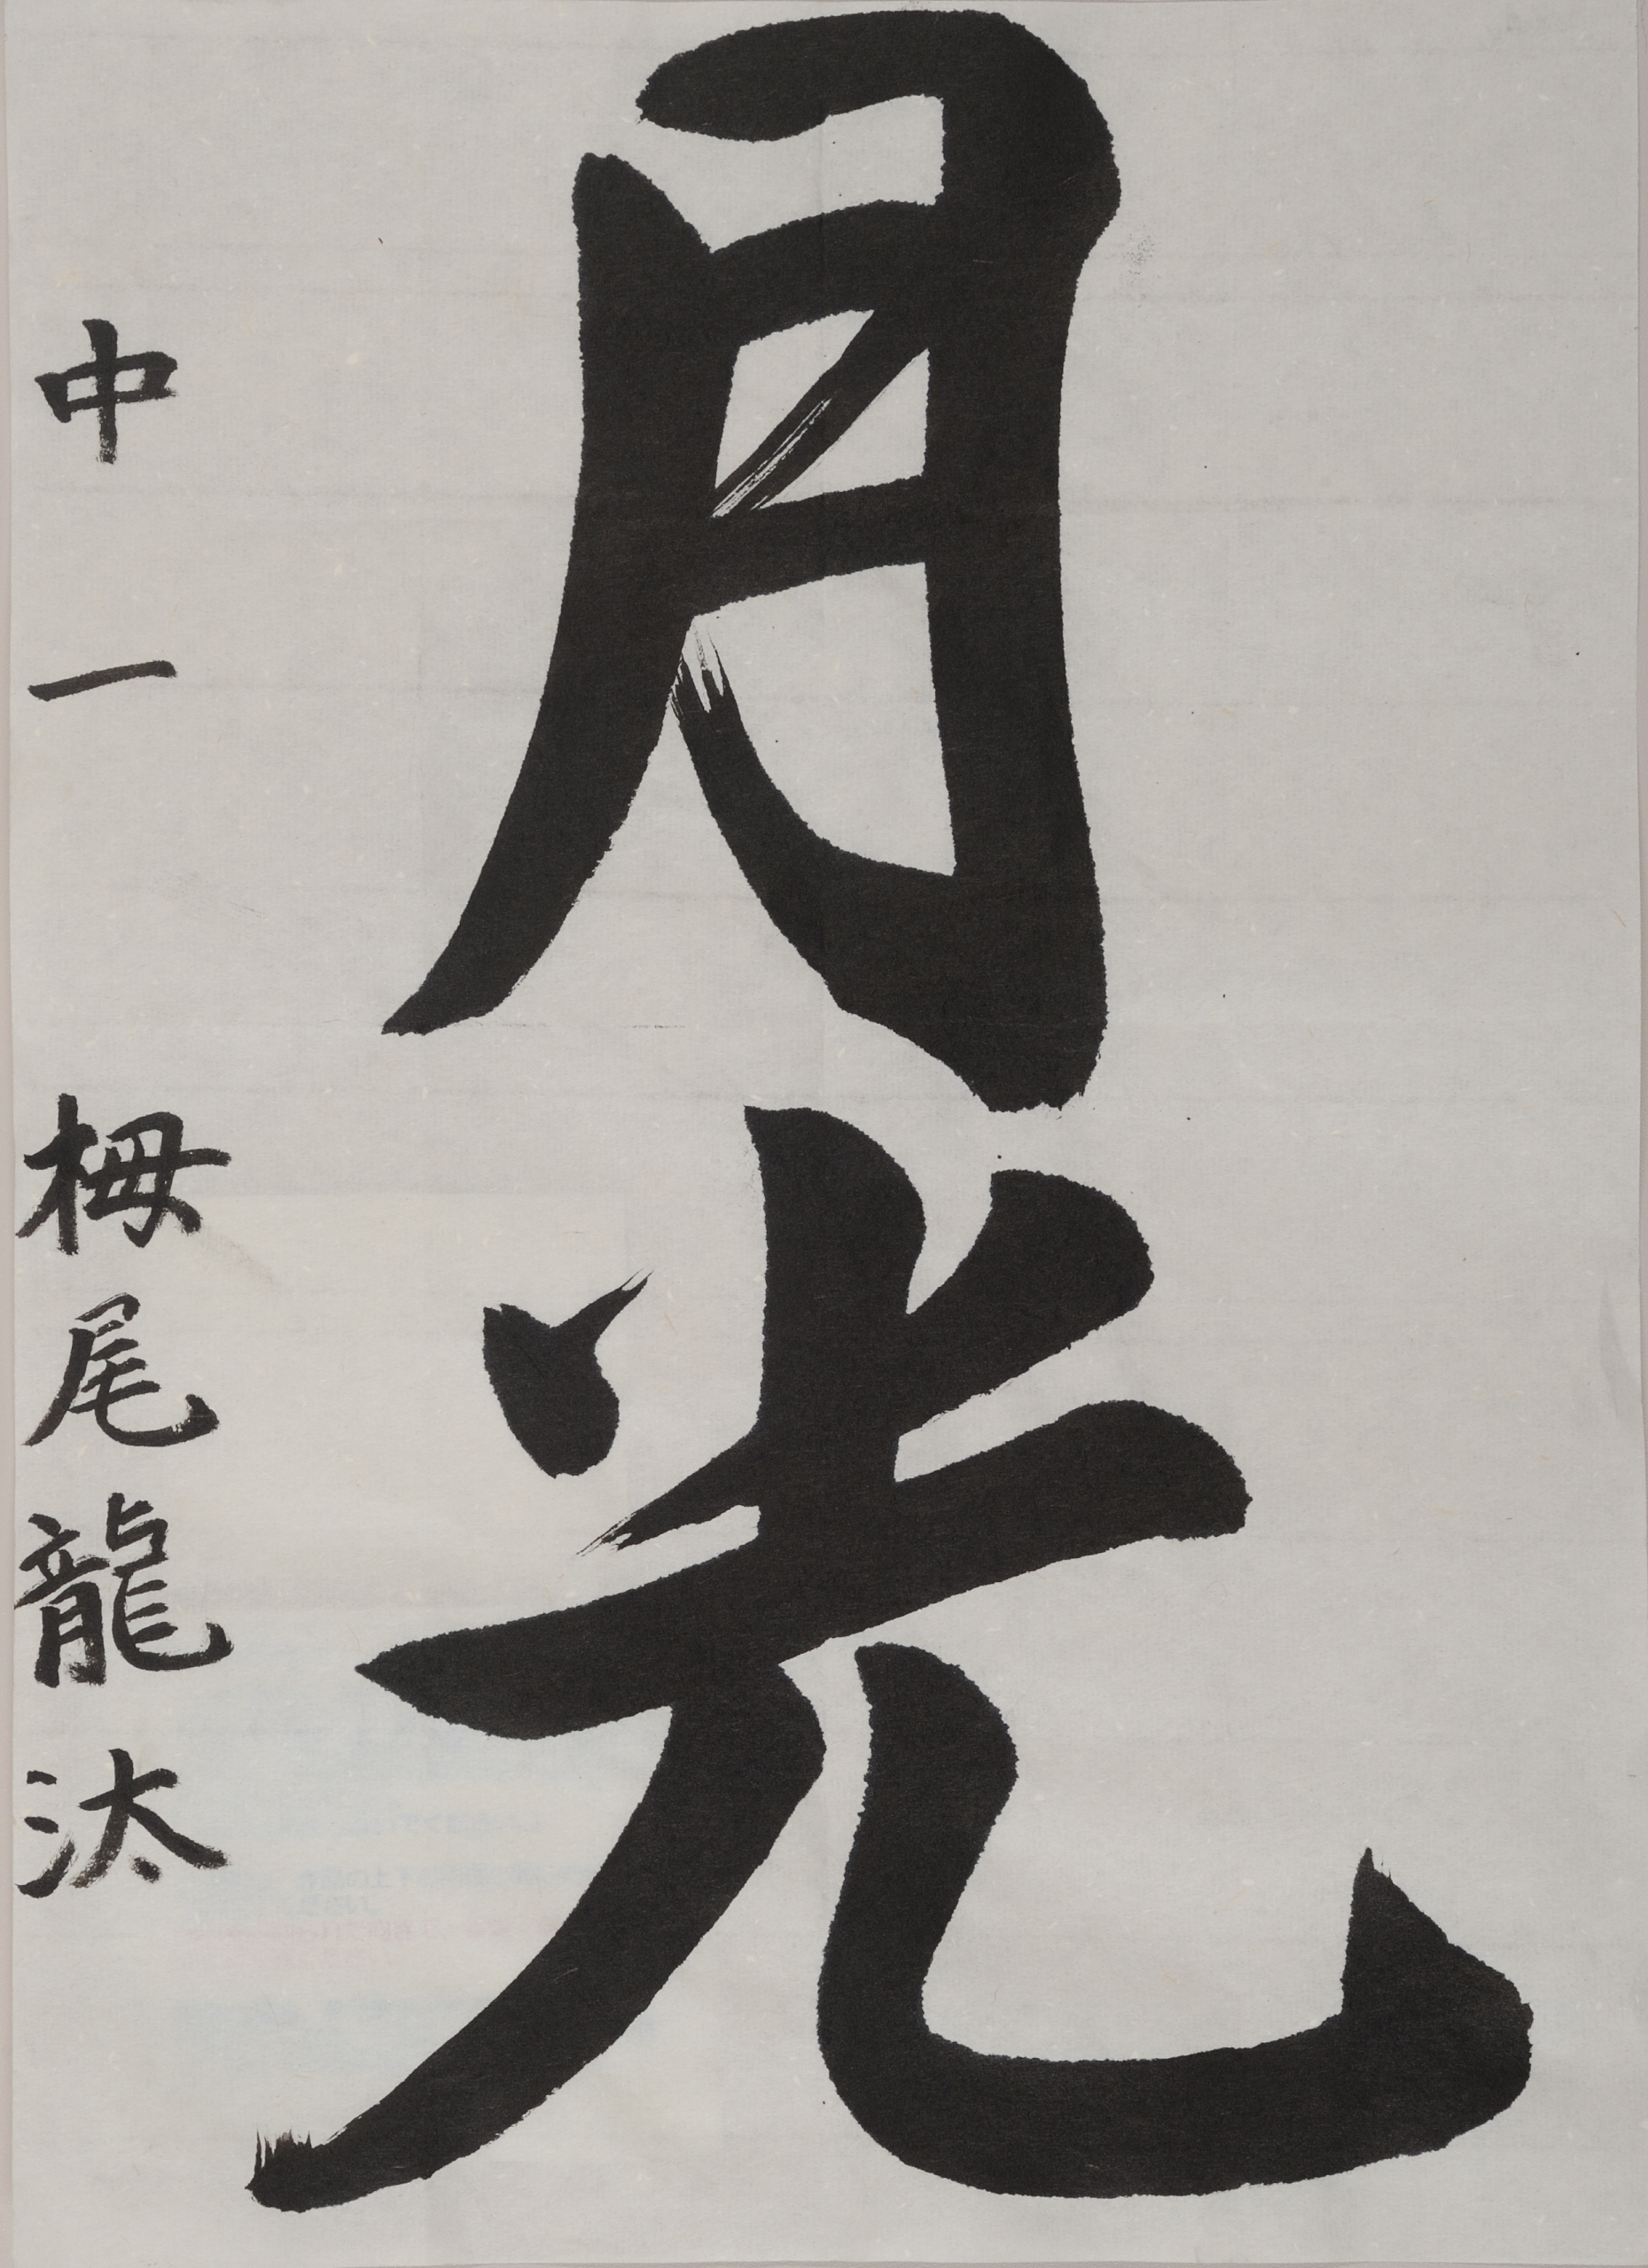 月光
中一 栂尾龍汰